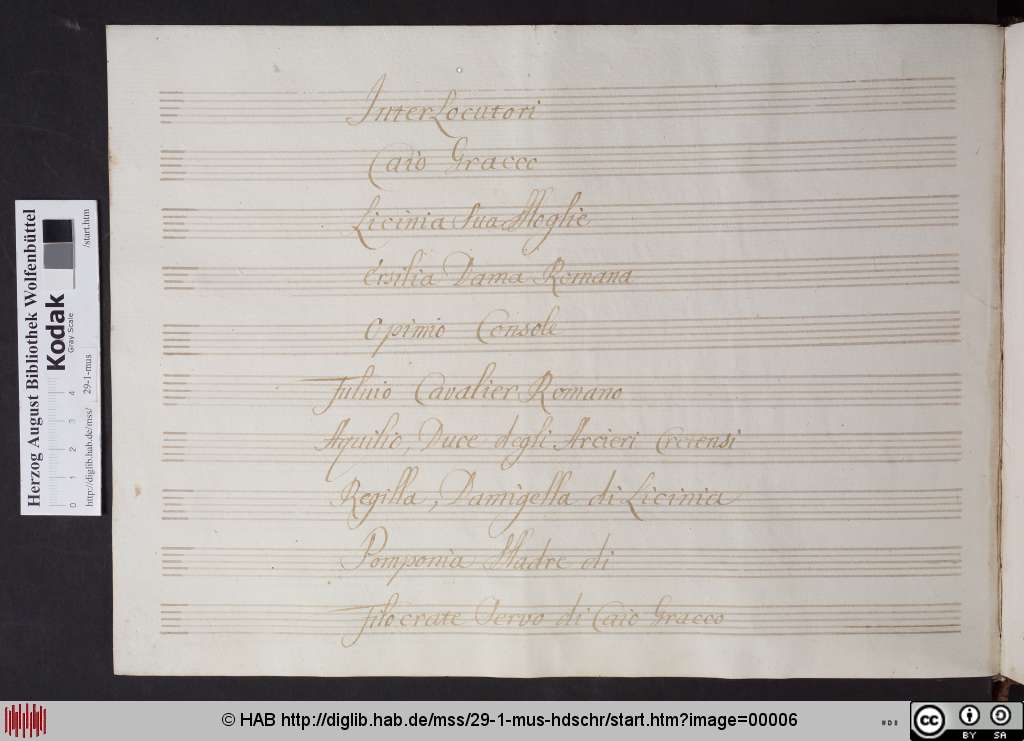 InterLocutori
Caio Gracco
Licinia Sua Moglie
Ersilia Dama Romana
Opimio Console
Fuluio Cavalier Romano
Aquilio, Duce degli Arcieri Creiensi
Regilla, Damigella di Licinia
Pomponia Madre di
Filocrate Servo di Caio Gracco
Herzog August Bibliothek Wolfenbüttel
Kodak
Gray Scale
0 1 2 3 4
http://diglib.hab.de/mss/ 29-1-mus /start.htm
© HAB http://diglib.hab.de/mss/29-1-mus-hdschr/start.htm?image=00006
cc BY SA